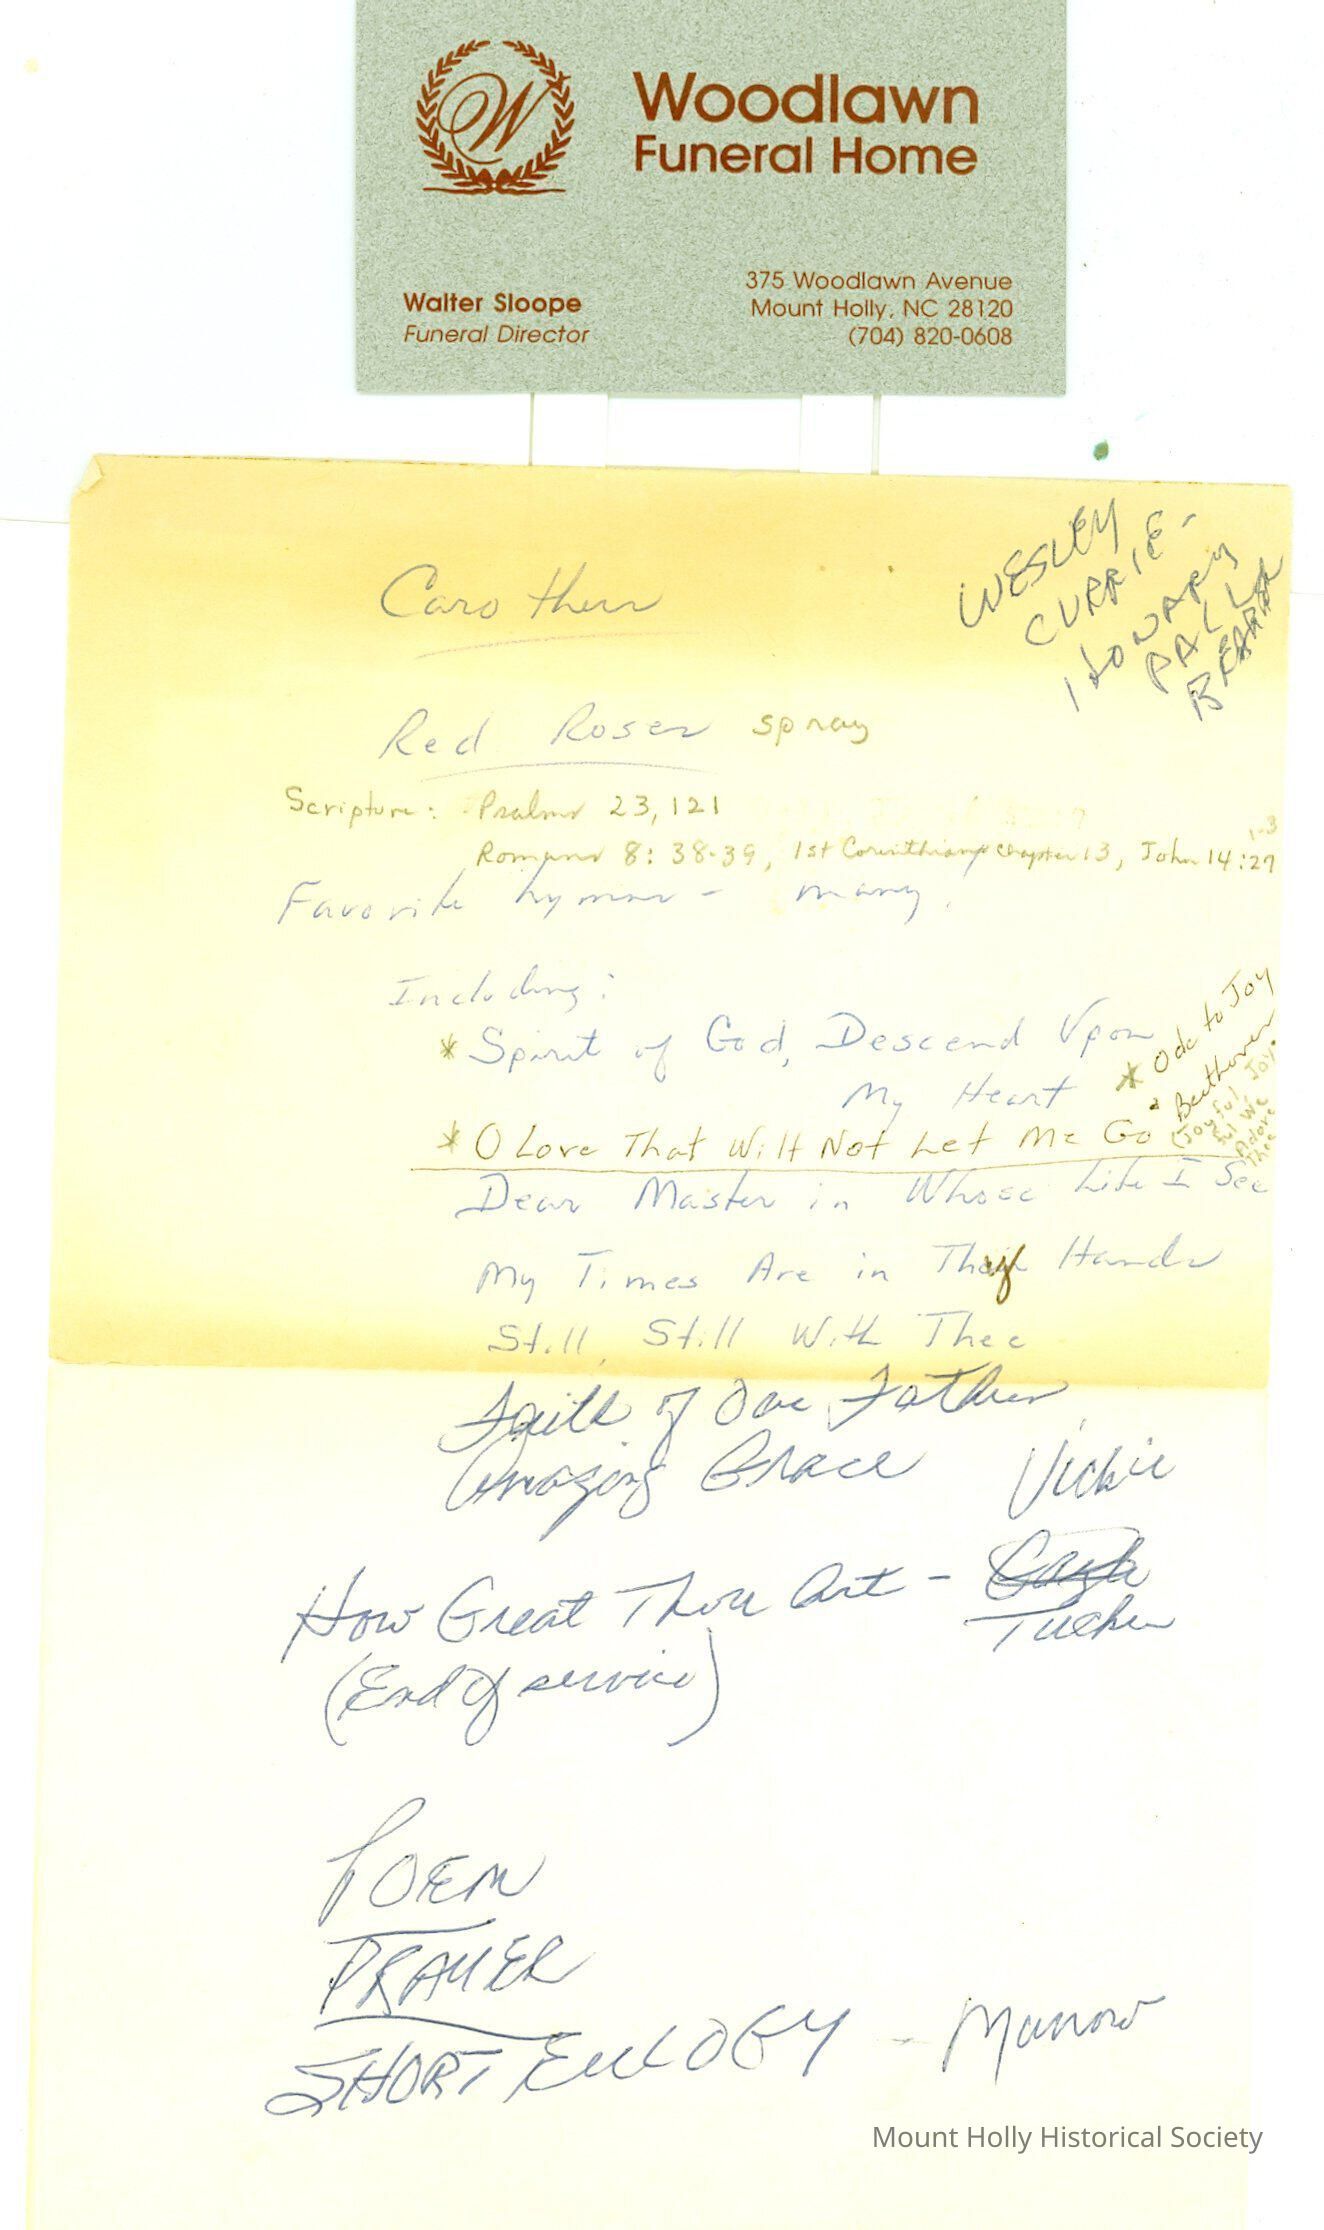 W
Woodlawn
Funeral Home
Walter Sloope
Funeral Director
375 Woodlawn Avenue
Mount Holly, NC 28120
(704) 820-0608
WESLEY
CURRIE -
HONARY
PALL
BEARER
Carothers
Red Roses spray
Scripture: Psalms 23, 121
Romans 8: 38-39, 1st Corinthians chapter 13, John 14: 1-3 27
Favorite hymns - many.
Including:
* Spirit of God, Descend Upon
My Heart
* Ode to Joy
Beethoven
(Joyful, Joy-
ful We
Adore
Thee
* O Love That Wilt Not Let Me Go
Dear Master in Whose Life I See
My Times Are in Thy Hands
Still, Still With Thee
Faith of Our Fathers
Amazing Grace
Vickie
How Great Thou Art -
Tucker
(End of service)
POEM
PRAYER
SHORT EULOGY - Morrow
Mount Holly Historical Society